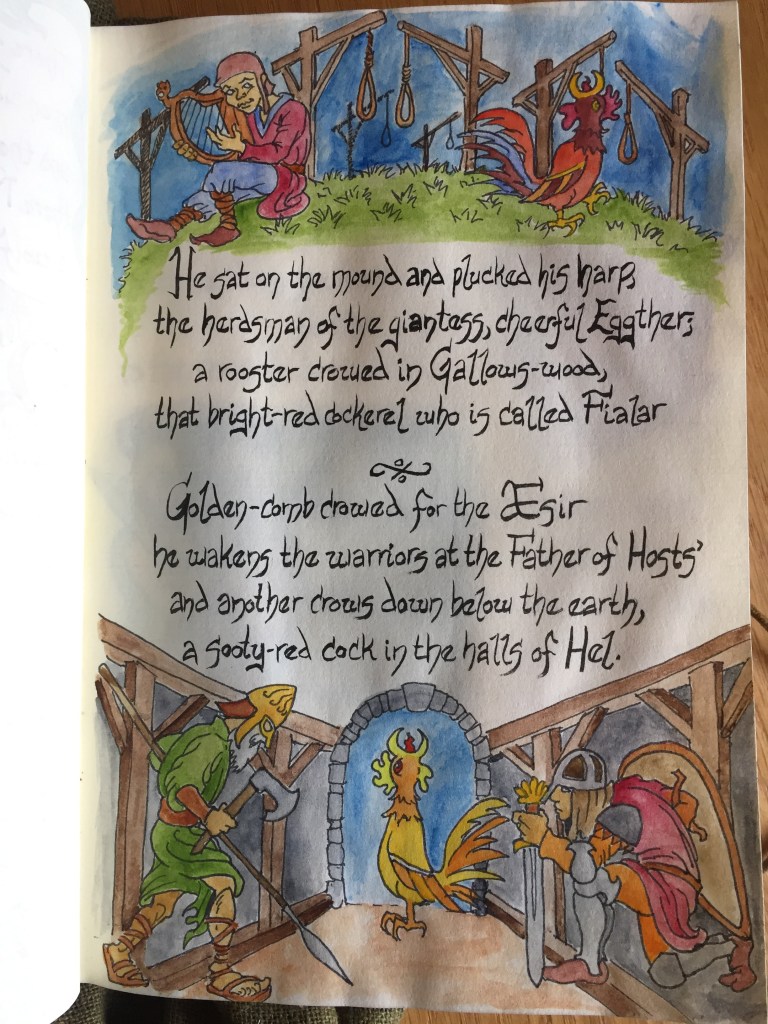 He sat on the mound and plucked his harp,
the herdsman of the giantess, cheerful Eggther;
a rooster crowed in Gallows-wood,
that bright-red cockerel who is called Fialar
Golden-comb crowed for the Æsir
he wakens the warriors at the Father of Hosts'
and another crows down below the earth,
a sooty-red cock in the halls of Hel.